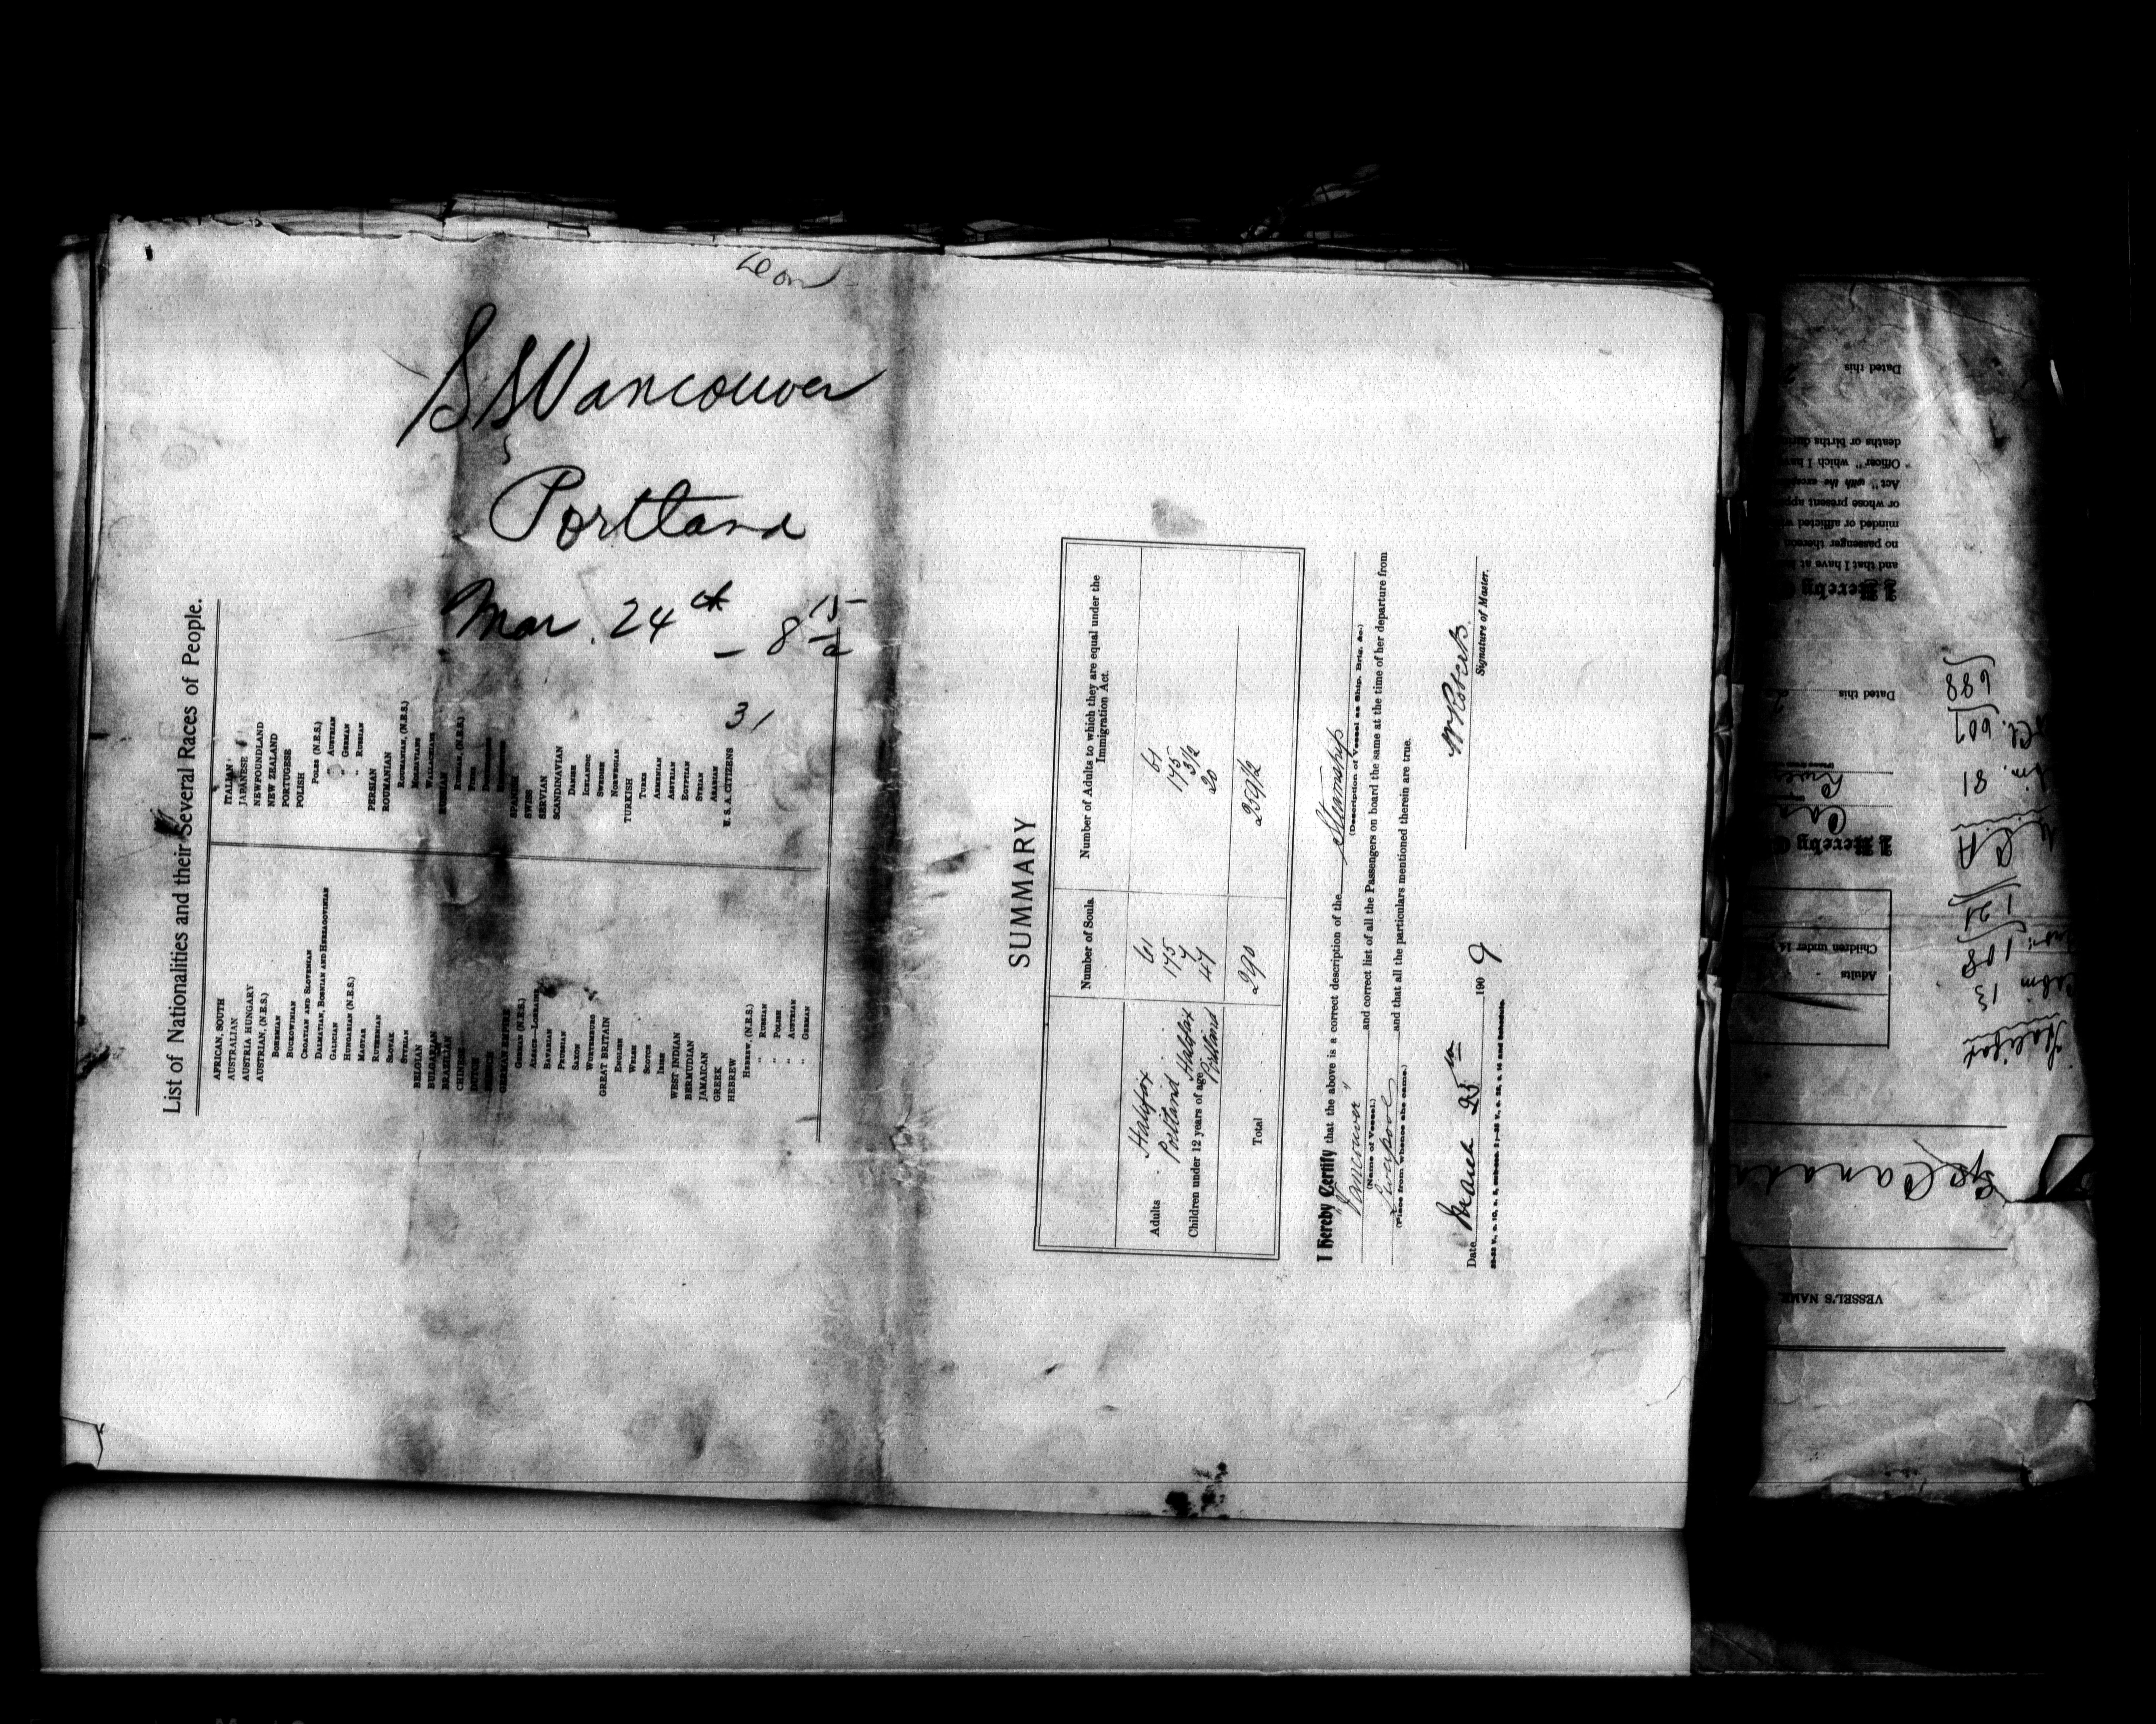 Leon
SS Vancouver
Portland
Mar. 24th - 8 15/a
31
List of Nationalities and their Several Races of People.
AFRICAN, SOUTH
AUSTRALIAN
AUSTRIA HUNGARY
AUSTRIAN, (N.E.S.)
BOHEMIAN
BUCKOWINIAN
CROATIAN AND SLOVENIAN
DALMATIAN, BOSNIAN AND HERZAGOVINIAN
GALICIAN
HUNGARIAN (N.E.S.)
MAGYAR
RUTHENIAN
SLOVAK
STYRIAN
BELGIAN
BULGARIAN
BRAZILIAN
CHINESE
DUTCH
FRENCH
GERMAN EMPIRE
GERMAN (N.E.S.)
ALSACE-LORRAINE
BAVARIAN
PRUSSIAN
SAXON
WURTEMBURG
GREAT BRITAIN
ENGLISH
WELSH
SCOTCH
IRISH
WEST INDIAN
BERMUDIAN
JAMAICAN
GREEK
HEBREW
HEBREW, (N.E.S.)
" RUSSIAN
" POLISH
" AUSTRIAN
" GERMAN
ITALIAN
JAPANESE
NEWFOUNDLAND
NEW ZEALAND
PORTUGESE
POLISH
POLES (N.E.S.)
" AUSTRIAN
" GERMAN
" RUSSIAN
PERSIAN
ROUMANIAN
ROUMANIAN, (N.E.S.)
MOLDAVIANS
WALLACHIANS
RUSSIAN
RUSSIAN, (N.E.S.)
FINNS
SPANISH
SWISS
SERVIAN
SCANDINAVIAN
DANISH
ICELANDIC
SWEDISH
NORWEGIAN
TURKISH
TURKS
ARMENIAN
ASSYRIAN
EGYPTIAN
SYRIAN
ARABIAN
U. S. A. CITIZENS
SUMMARY
Number of Souls. Number of Adults to which they are equal under the Immigration Act.
Adults Halifax 61 61
Portland 175 175
Children under 12 years of age Halifax 7 3 1/2
Portland 47 20
Total 290 259 1/2
I Hereby Certify that the above is a correct description of the Steamship
(Description of Vessel as Ship, Brig, &c.)
Vancouver and correct list of all the Passengers on board the same at the time of her departure from
(Name of Vessel.)
Liverpool and that all the particulars mentioned therein are true.
(Place from whence she came.)
W Roberts
Signature of Master.
Date March 25th 1909
VESSEL'S NAME
SS Canada
Halifax
Adults
Children under 14
Hereby
Dated this
Hereby
and that I have at
no passenger thereon
minded or afflicted
or whose present
Act" with the
Officer" which I have
deaths or births
Dated this